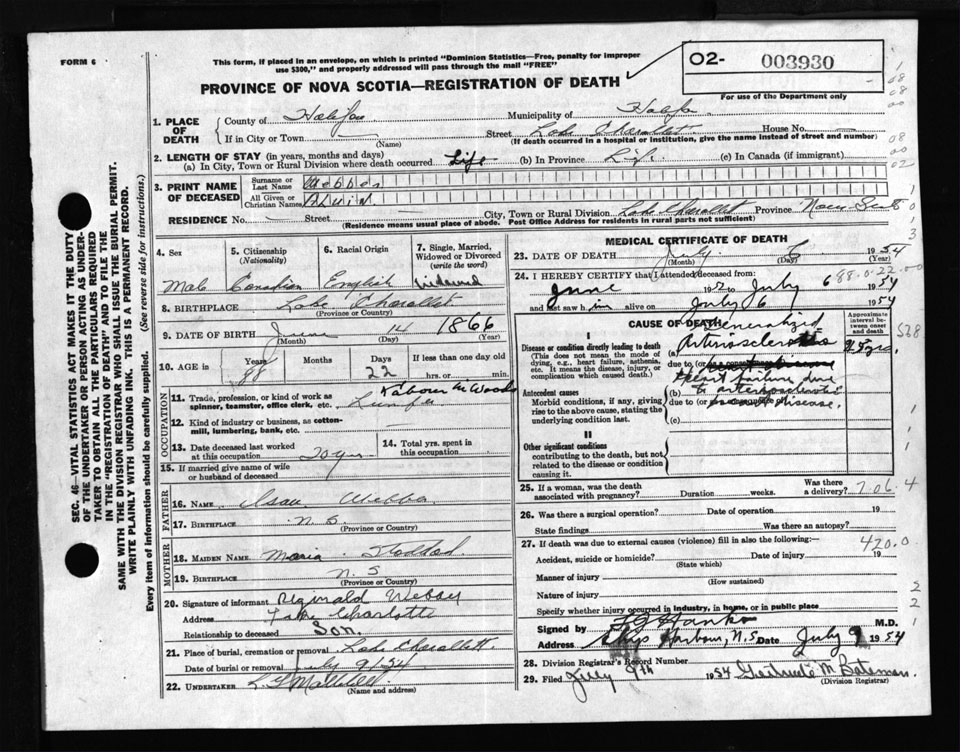 FORM 6
This form, if placed in an envelope, on which is printed "Dominion Statistics—Free, penalty for improper
use $300," and properly addressed will pass through the mail "FREE"
O2- 003930
For use of the Department only
PROVINCE OF NOVA SCOTIA—REGISTRATION OF DEATH
SEC. 46—VITAL STATISTICS ACT MAKES IT THE DUTY
OF THE UNDERTAKER OR PERSON ACTING AS UNDER-
TAKER TO OBTAIN ALL THE PARTICULARS REQUIRED
IN THE "REGISTRATION OF DEATH" AND TO FILE THE
SAME WITH THE DIVISION REGISTRAR WHO SHALL ISSUE THE BURIAL PERMIT.
WRITE PLAINLY WITH UNFADING INK. THIS IS A PERMANENT RECORD.
Every item of information should be carefully supplied. (See reverse side for instructions.)
1. PLACE OF DEATH
County of Halifax Municipality of Halifax
If in City or Town — Street Lake Charollett House No. —
(Name) (If death occurred in a hospital or institution, give the name instead of street and number)
2. LENGTH OF STAY (in years, months and days)
(a) In City, Town or Rural Division where death occurred Life (b) In Province Life (c) In Canada (if immigrant)
3. PRINT NAME OF DECEASED
Surname or Last Name Webber
All Given or Christian Names Alvin
RESIDENCE No. — Street City, Town or Rural Division Lake Charollett Province Nova Scotia
(Residence means usual place of abode. Post Office Address for residents in rural parts not sufficient)
4. Sex
Male
5. Citizenship (Nationality)
Canadian
6. Racial Origin
English
7. Single, Married, Widowed or Divorced (write the word)
widowed
8. BIRTHPLACE Lake Charollett
(Province or Country)
9. DATE OF BIRTH June 14 1866
(Month) (Day) (Year)
10. AGE in Years Months Days If less than one day old
88 22 hrs. or min.
OCCUPATION
11. Trade, profession, or kind of work as
spinner, teamster, office clerk, etc.
12. Kind of industry or business, as cotton-
mill, lumbering, bank, etc. —
13. Date deceased last worked
at this occupation 20 yrs
14. Total yrs. spent in
this occupation
15. If married give name of wife
or husband of deceased
FATHER
16. NAME Webber
17. BIRTHPLACE N. S.
(Province or Country)
MOTHER
18. MAIDEN NAME Maria
19. BIRTHPLACE N. S
(Province or Country)
20. Signature of informant Reginald Webber
Address Lake Charlotte
Relationship to deceased Son.
21. Place of burial, cremation or removal Lake Charollett
Date of burial or removal July 9/54
22. UNDERTAKER
(Name and address)
MEDICAL CERTIFICATE OF DEATH
23. DATE OF DEATH July 6 1954
(Month) (Day)
24. I HEREBY CERTIFY that I attended deceased from:
June 195 to July 6 1954
and last saw him alive on July 6 1954
688-0-22-00
CAUSE OF DEATH
Approximate interval between onset and death
I
Disease or condition directly leading to death
(This does not mean the mode of
dying, e.g., heart failure, asthenia,
etc. It means the disease, injury, or
complication which caused death.)
Generalized
Arteriosclerosis
due to (or
heart failure due
Antecedent causes
Morbid conditions, if any, giving
rise to the above cause, stating the
underlying condition last.
(b) to arteriosclerotic
due to (or disease,
(c)
II
Other significant conditions
contributing to the death, but not
related to the disease or condition
causing it.
25. If a woman, was the death
associated with pregnancy? Duration weeks. Was there
a delivery?
706.4
26. Was there a surgical operation? Date of operation 19
State findings Was there an autopsy?
27. If death was due to external causes (violence) fill in also the following:
420.0
Accident, suicide or homicide? Date of injury 19
(State which)
Manner of injury
(How sustained)
Nature of injury
Specify whether injury occurred in industry, in home, or in public place
Signed by M.D.
Address Ship Harbour, N.S. Date July 9 1954
28. Division Registrar's Record Number
29. Filed July 9th 1954 Gertrude M. Bateman
(Division Registrar)